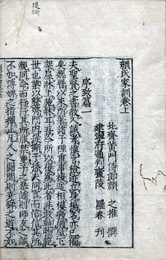 顏氏家訓卷上
北齊黃門侍郎顏之推撰
建寧府通判廬陵羅春刊
序致篇一
夫聖賢之書教人誠孝慎言檢迹立身揚名亦已
備矣魏晉以來所著諸子理重事複遞相模斆猶屋下
架屋牀上施牀耳吾今所以復爲此者非敢軌物範
世也業以整齊門內提撕子孫夫同言而信信其所
親同命而行行其所服禁童子之暴謔則師友之誡
不如傅婢之指揮止凡人之鬭鬩則堯舜之道不